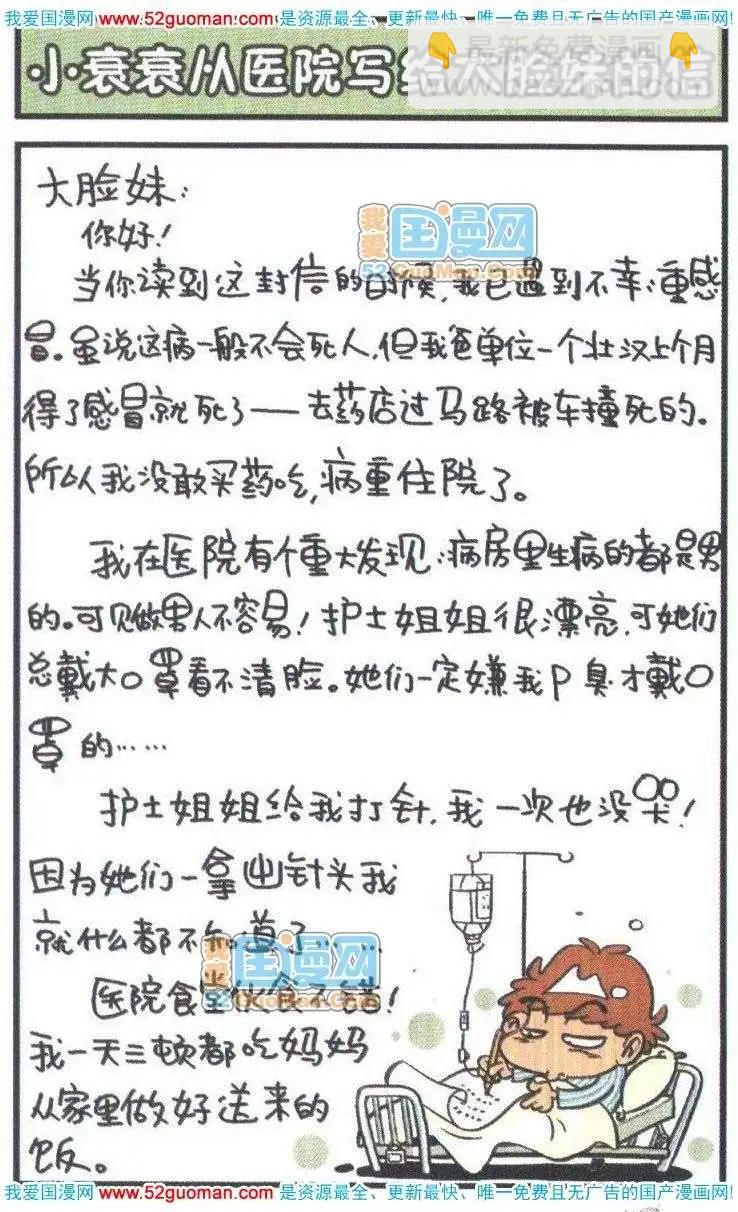 我爱国漫网 www.52guoman.com 是资源最全、更新最快、唯一免费且无广告的国产漫画网!
最新免费漫画
小衰衰从医院写给大脸妹的信
大脸妹:
你好!
我爱国漫网
52GuoMan.Com
当你读到这封信的时候,我已遇到不幸:重感
冒。虽说这病一般不会死人,但我爸单位一个壮汉上个月
得了感冒就死了——去药店过马路被车撞死的。
所以我没敢买药吃,病重住院了。
我在医院有个重大发现:病房里生病的都是男
的。可见做男人不容易!护士姐姐很漂亮,可她们
总戴大口罩看不清脸。她们一定嫌我P臭才戴口
罩的……
护士姐姐给我打针,我一次也没哭!
因为她们一拿出针头我
就什么都不知道了……
我爱国漫网
52GuoMan.Com
医院食堂伙食不错!
我一天三顿都吃妈妈
从家里做好送来的
饭。
我爱国漫网 www.52guoman.com 是资源最全、更新最快、唯一免费且无广告的国产漫画网!